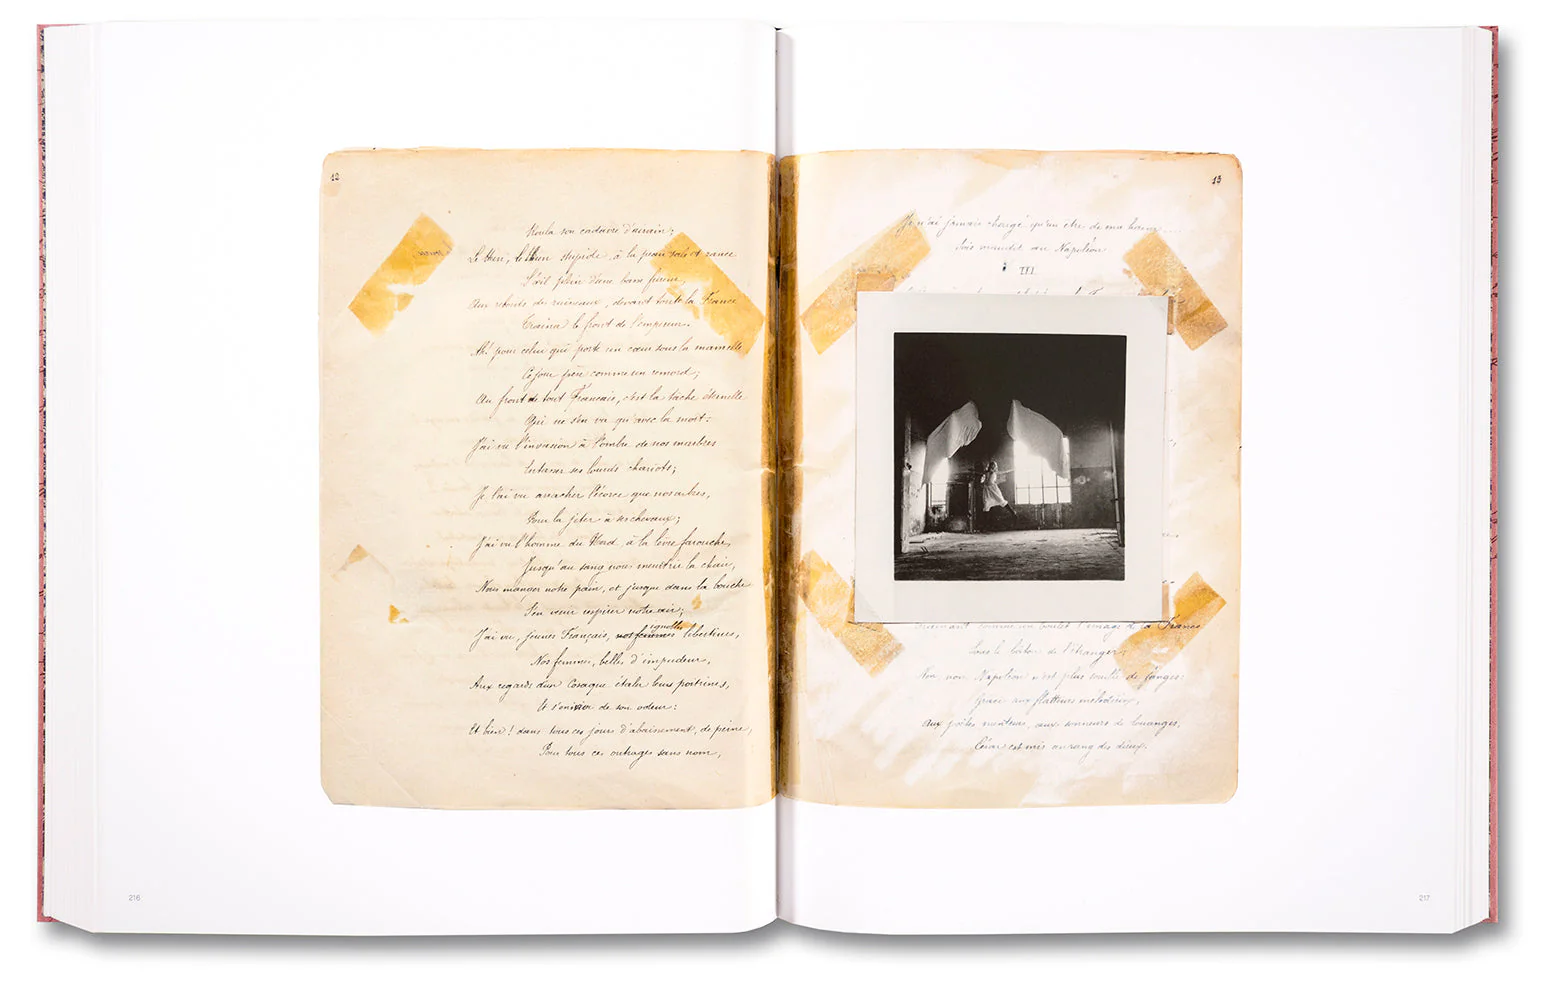 12
Roula son cadavre d'airain;
Le Hun, le Hun stupide, à la peau sale et rance
L'œil plein d'une basse fureur,
Aux rebords des ruisseaux, devant toute la France
Traina le front de l'empereur.
Ah! pour celui qui porte un cœur sous la mamelle
Ce jour pèse comme un remord;
Au front de tout Français, c'est la tâche éternelle
Qui ne s'en va qu'avec la mort:
J'ai vu l'invasion à l'ombre de nos marbres
Entasser ses lourds chariots;
Je l'ai vu arracher l'écorce que nos arbres,
Pour la jeter à ses chevaux;
J'ai vu l'homme du Nord, à la lèvre farouche,
Jusqu'au sang nous meurtrir la chair,
Nous manger notre pain, et jusque dans la bouche
S'en venir respirer notre air;
ignobles
J'ai vu, jeunes Français, nos femmes libertines,
Nos femmes, belles d'impudeur,
Aux regards d'un Cosaque étaler leurs poitrines,
Et s'enivrer de son odeur:
Et bien! dans tous ces jours d'abaissement, de peine,
Pour tous ces outrages sans nom,
216
13
Je n'ai jamais chargé qu'un être de ma haine....
Sois maudit au Napoléon
III.
comme un boulet l'image de la France
Sous le bâton de l'étranger.
Non non Napoléon n'est plus souillé de fanges:
Grâce aux flatteurs mélodieux,
Aux poètes menteurs, aux sonneurs de louanges,
César est mis au rang des dieux.
217